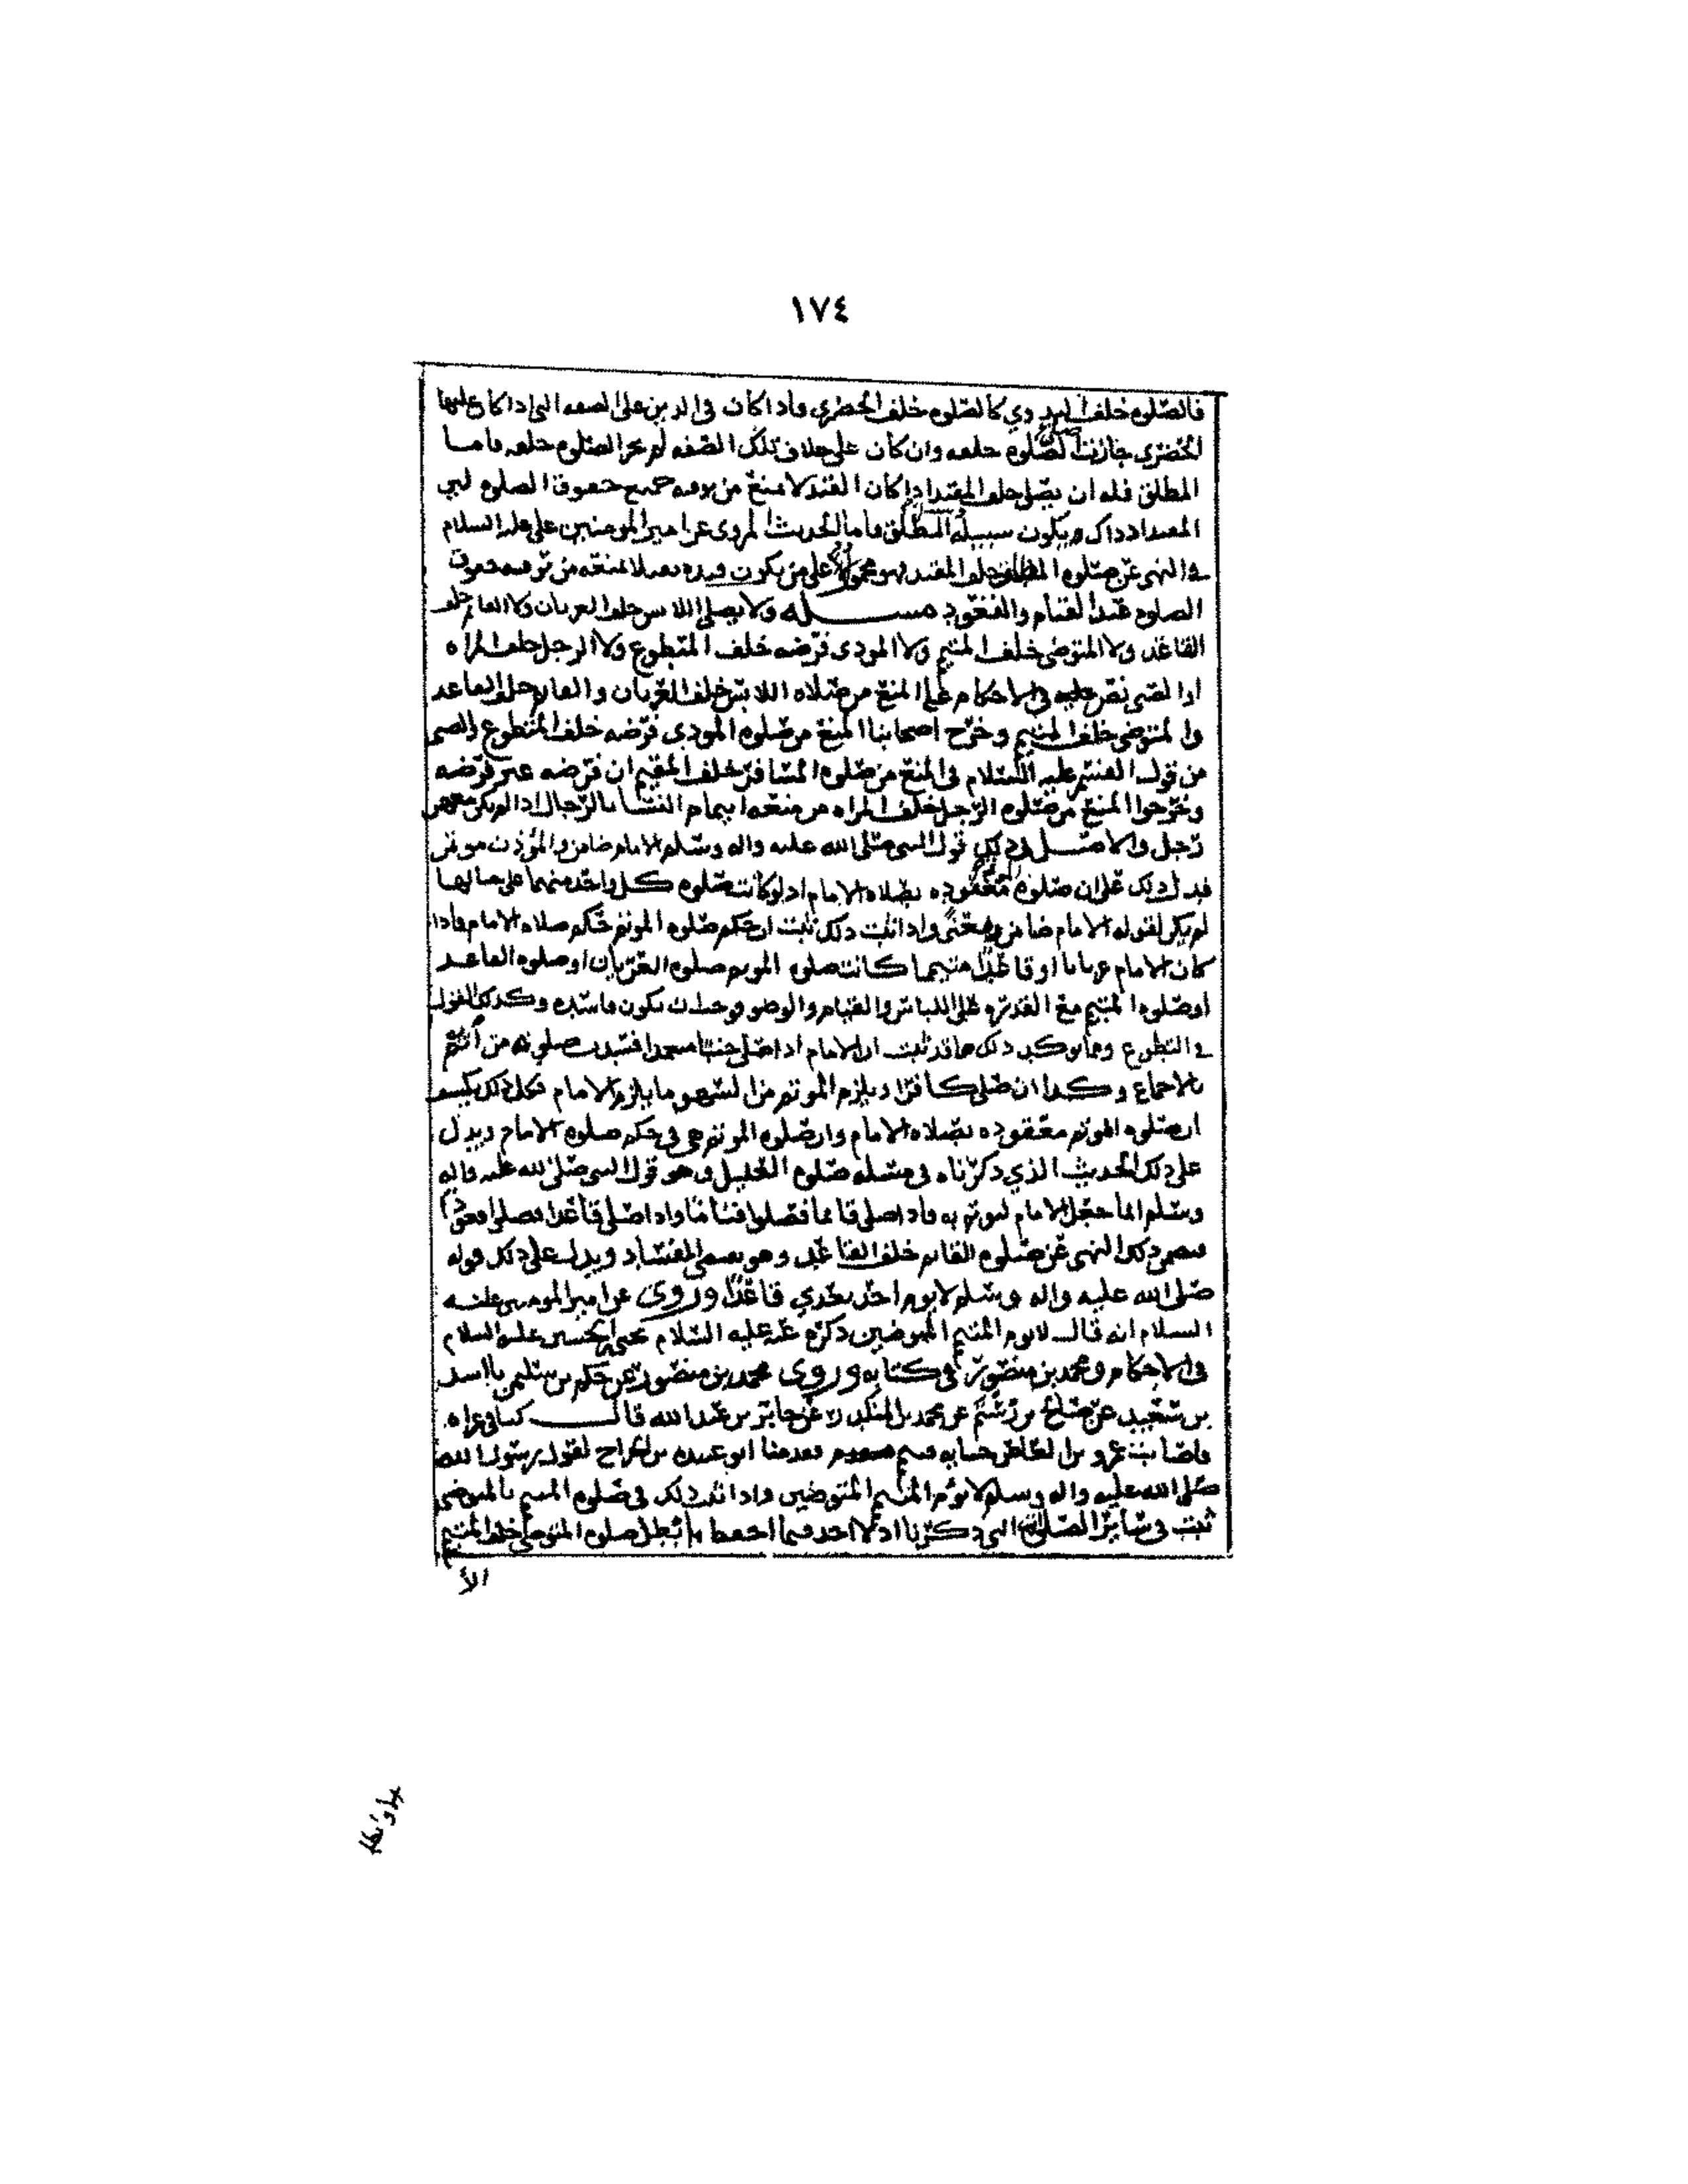 ١٧٤
فالصلوه خلف البدوي كالصلوه خلف الحضري واذا كان في الدين على الصفه التي اذا كان عليها
الحضري جازت الصلوه خلفه وان كان على خلاف تلك الصفه لم تجز الصلوه خلفه فاما
المطلق فله ان يصلي خلف المقيد اذا كان القيد لا يمنع من توفيه جميع حقوق الصلوه
المقيد اذ ذاك ويكون سبيله المطلق فاما الحديث المروي عن امير المومنين علي عليه السلام
في النهي عن صلوه المطلق خلف المقيد فهو محمول على من يكون قيده يمنعه من توفيه حقوق
الصلوه عند القيام والقعود مسله ولا يصلي اللابس خلف العريان ولا القايم خلف
القاعد ولا المتوضي خلف المتيمم ولا المودي فرضه خلف المتطوع ولا الرجل خلف المراه
نص عليه في الاحكام على المنع من صلاه اللابس خلف العريان والقايم خلف القاعد
والمتوضي خلف المتيمم وخرج اصحابنا المنع من صلوه المودي فرضه خلف المتطوع
من قول القسم عليه السلام في المنع من صلوه المسافر خلف المقيم ان فرضه غير فرضه
وخرجوا المنع من صلوه الرجل خلف المراه من منعه ايتمام النسا بالرجال اذا لم يكن معهن
رجل والاصل في ذلك قول النبي صلى الله عليه واله وسلم الامام ضامن والمؤذن موتمن
فدل ذلك على ان صلوه الموتم معقوده بصلاه الامام اذ لو كانت صلوه كل واحد منهما على حالها
لم يكن لقوله الامام ضامن معنى واذا ثبت ذلك ثبت ان حكم صلوه الموتم حكم صلاه الامام فاذا
كان الامام عريانا او قاعدا او متيمما كانت صلوه الموتم صلوه العريان او صلوه القاعد
او صلوه المتيمم مع القدره على اللباس والقيام والوضو فوجب ان تكون فاسده وكذلك القول
في التطوع ومما يوكد ذلك ما قد ثبت ان الامام اذا صلى جنبا متعمدا فسدت صلوته من ائتم
بالاجماع وكذا ان صلى كافرا ويلزم الموتم من السهو ما يلزم الامام فكل ذلك يكشف
ان صلوه الموتم معقوده بصلاه الامام وان صلوه الموتم هي في حكم صلوه الامام ويدل
على ذلك الحديث الذي ذكرناه في مسله صلوه العليل وهو قول النبي صلى الله عليه واله
وسلم انما جعل الامام ليوتم به فاذا صلى قايما فصلوا قياما واذا صلى قاعدا فصلوا قعودا
فتضمن ذلك النهي عن صلوه القايم خلف القاعد وهو يقتضي الفساد ويدل على ذلك قوله
صلى الله عليه واله وسلم لا يوم احد بعدي قاعدا وروي عن امير المومنين عليه
السلام انه قال لا يوم المتيمم المتوضين ذكره عنه عليه السلام يحيى بن الحسين عليه السلام
في الاحكام ومحمد بن منصور في كتابه وروى محمد بن منصور عن حكم بن سليمن
بن سعيد عن صالح بن رستم عن محمد بن المنكدر عن جابر بن عبد الله قال كنا في غزاه
فاصابت عمرو بن العاص جنابه فتيمم فقدمنا ابو عبيده بن الجراح لقول رسول الله
صلى الله عليه واله وسلم لا يوم المتيمم المتوضين واذا ثبت ذلك في صلوه المتيمم بالمتوضي
ثبت في ساير الصلوات التي ذكرنا اذ لا احد فيما احفظ ابطل صلوه المتوضي خلف المتيمم
الا